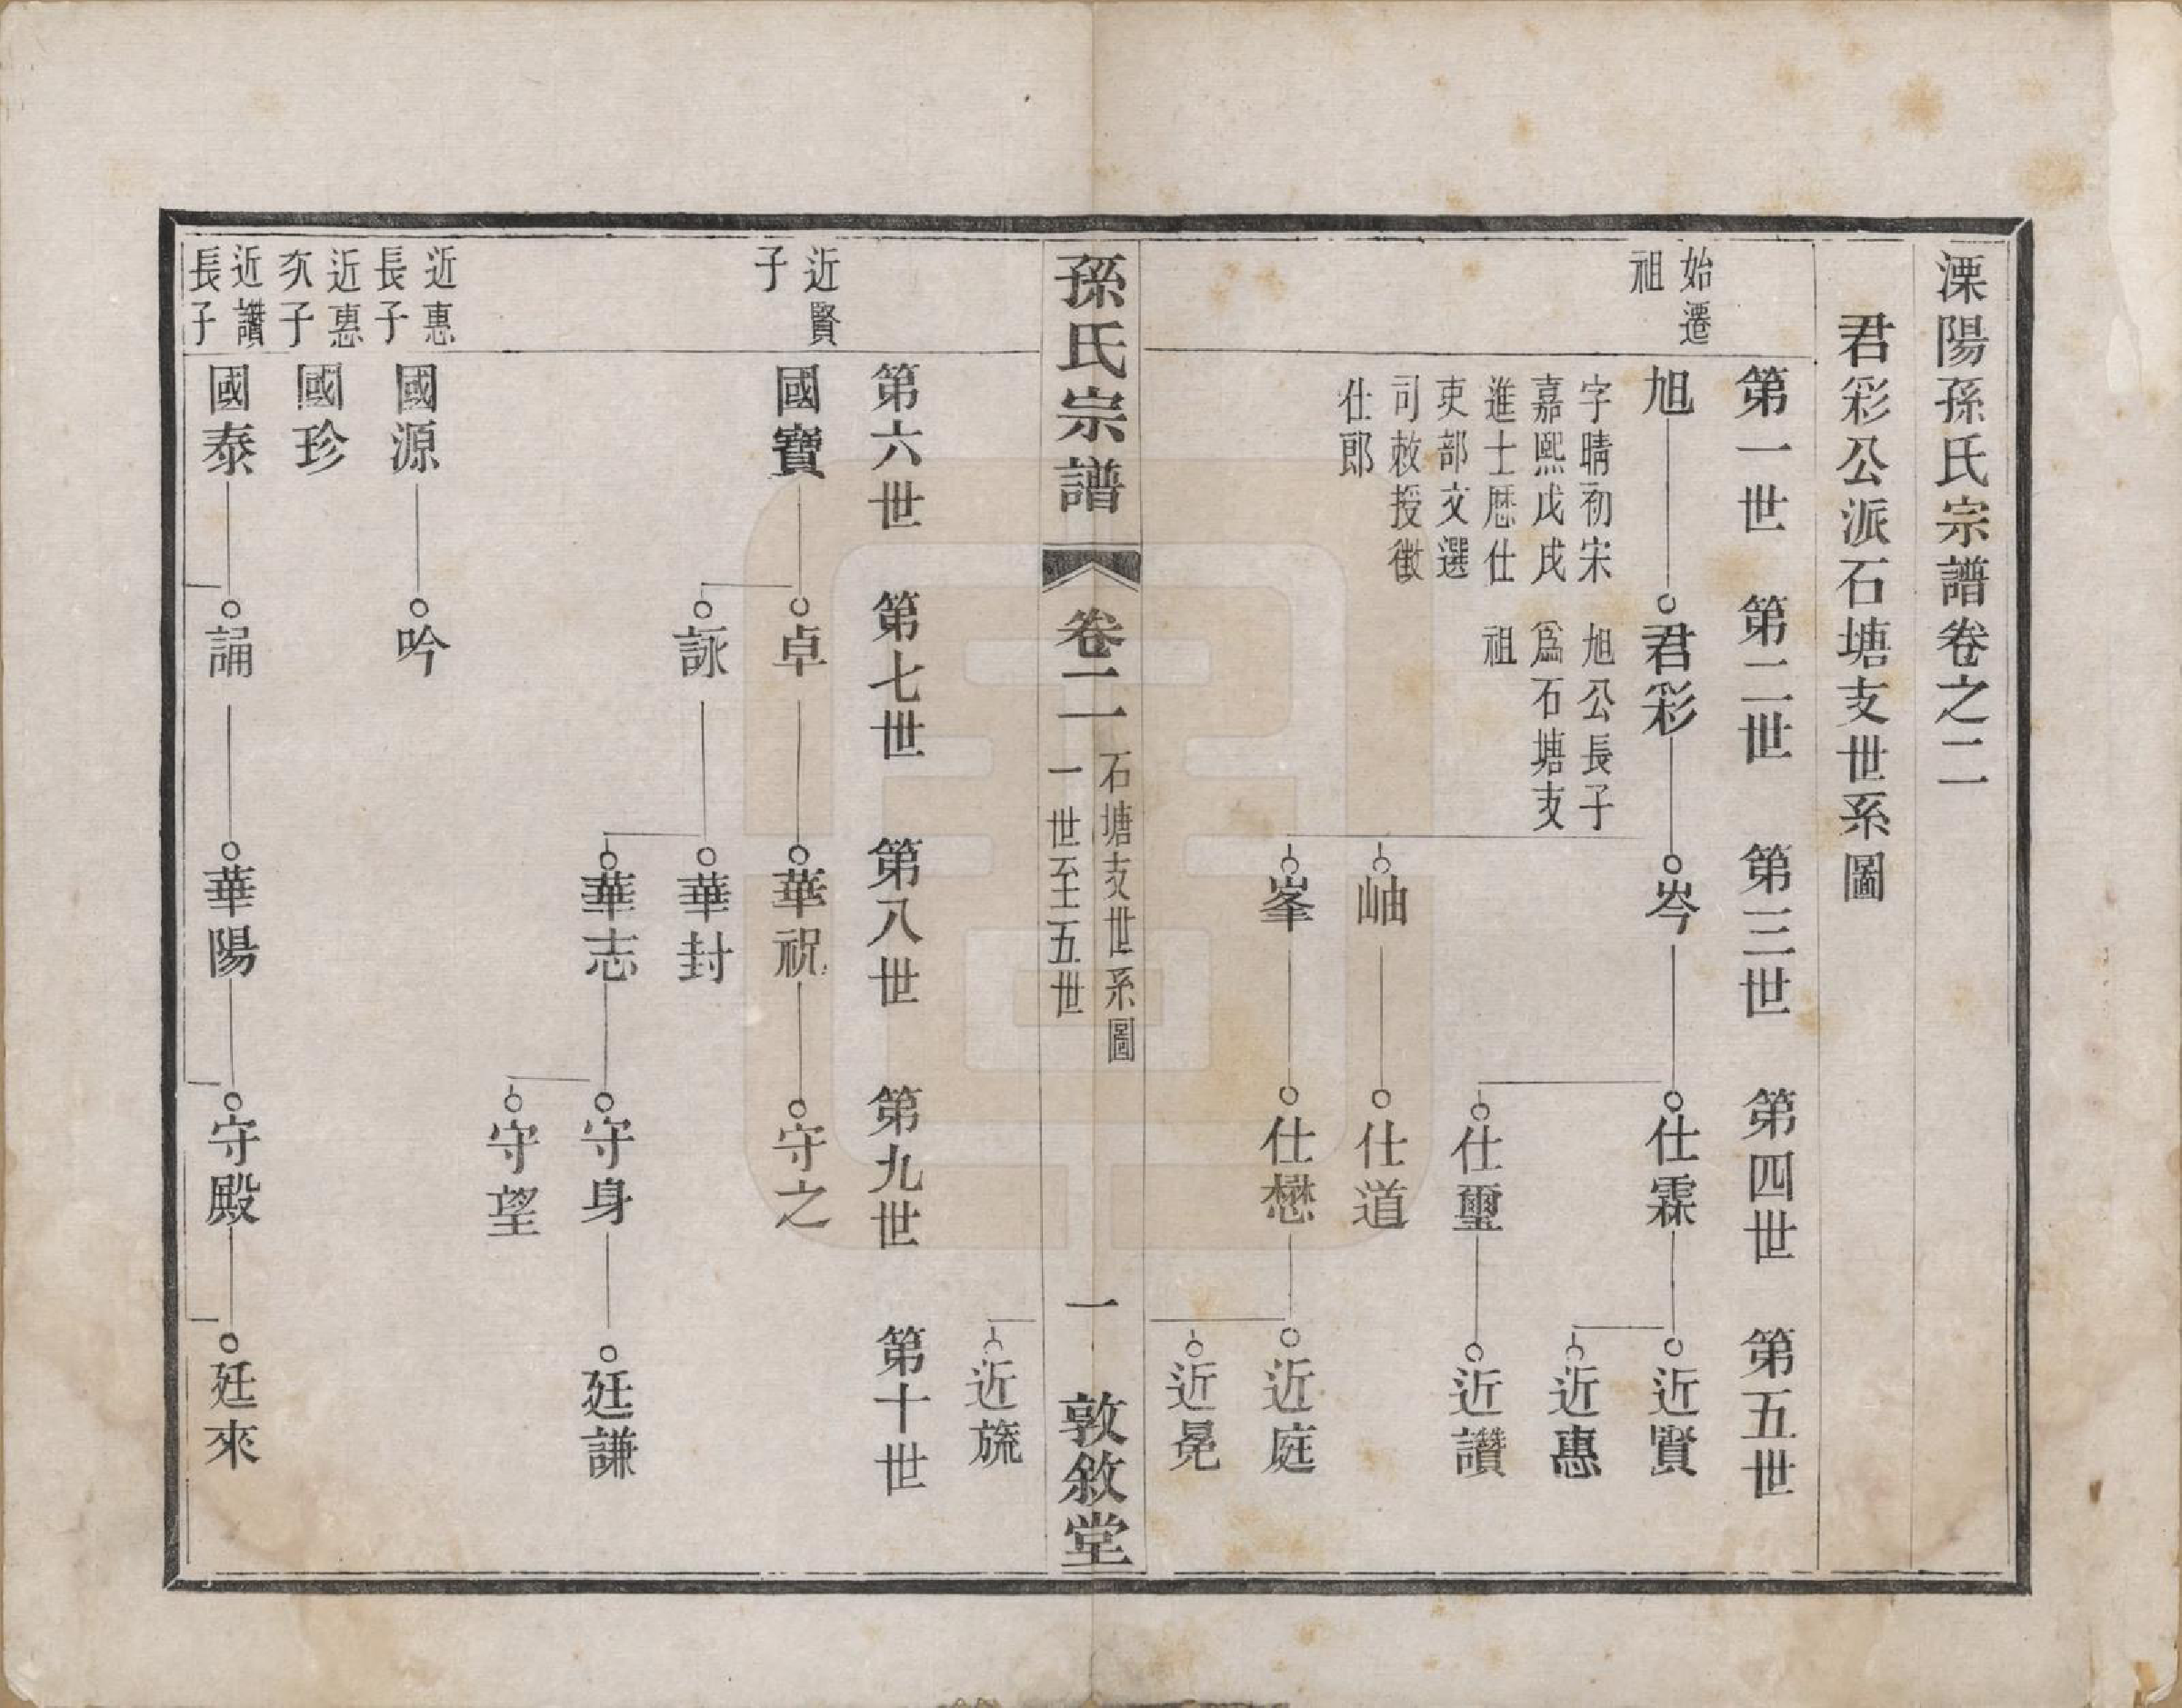 溧陽孫氏宗譜卷之二
君彩公派石塘支世系圖
第一世
第二世
第三世
第四世
第五世
始遷
祖
旭
字晴初宋
嘉熙戊戌
進士歷仕
吏部文選
司敕授徵
仕郎
君彩
旭公長子
爲石塘支
祖
岑
仕霖
近賢
近惠
仕璽
近讚
岫
仕道
峯
仕懋
近庭
近晃
孫氏宗譜
卷二
石塘支世系圖
一世至五世
一
敦敘堂
近旒
第六世
第七世
第八世
第九世
第十世
近賢
子
國寶
卓
華祝
守之
詠
華封
華志
守身
廷謙
守望
近惠
長子
國源
吟
近惠
次子
國珍
近讚
長子
國泰
誦
華陽
守殿
廷來